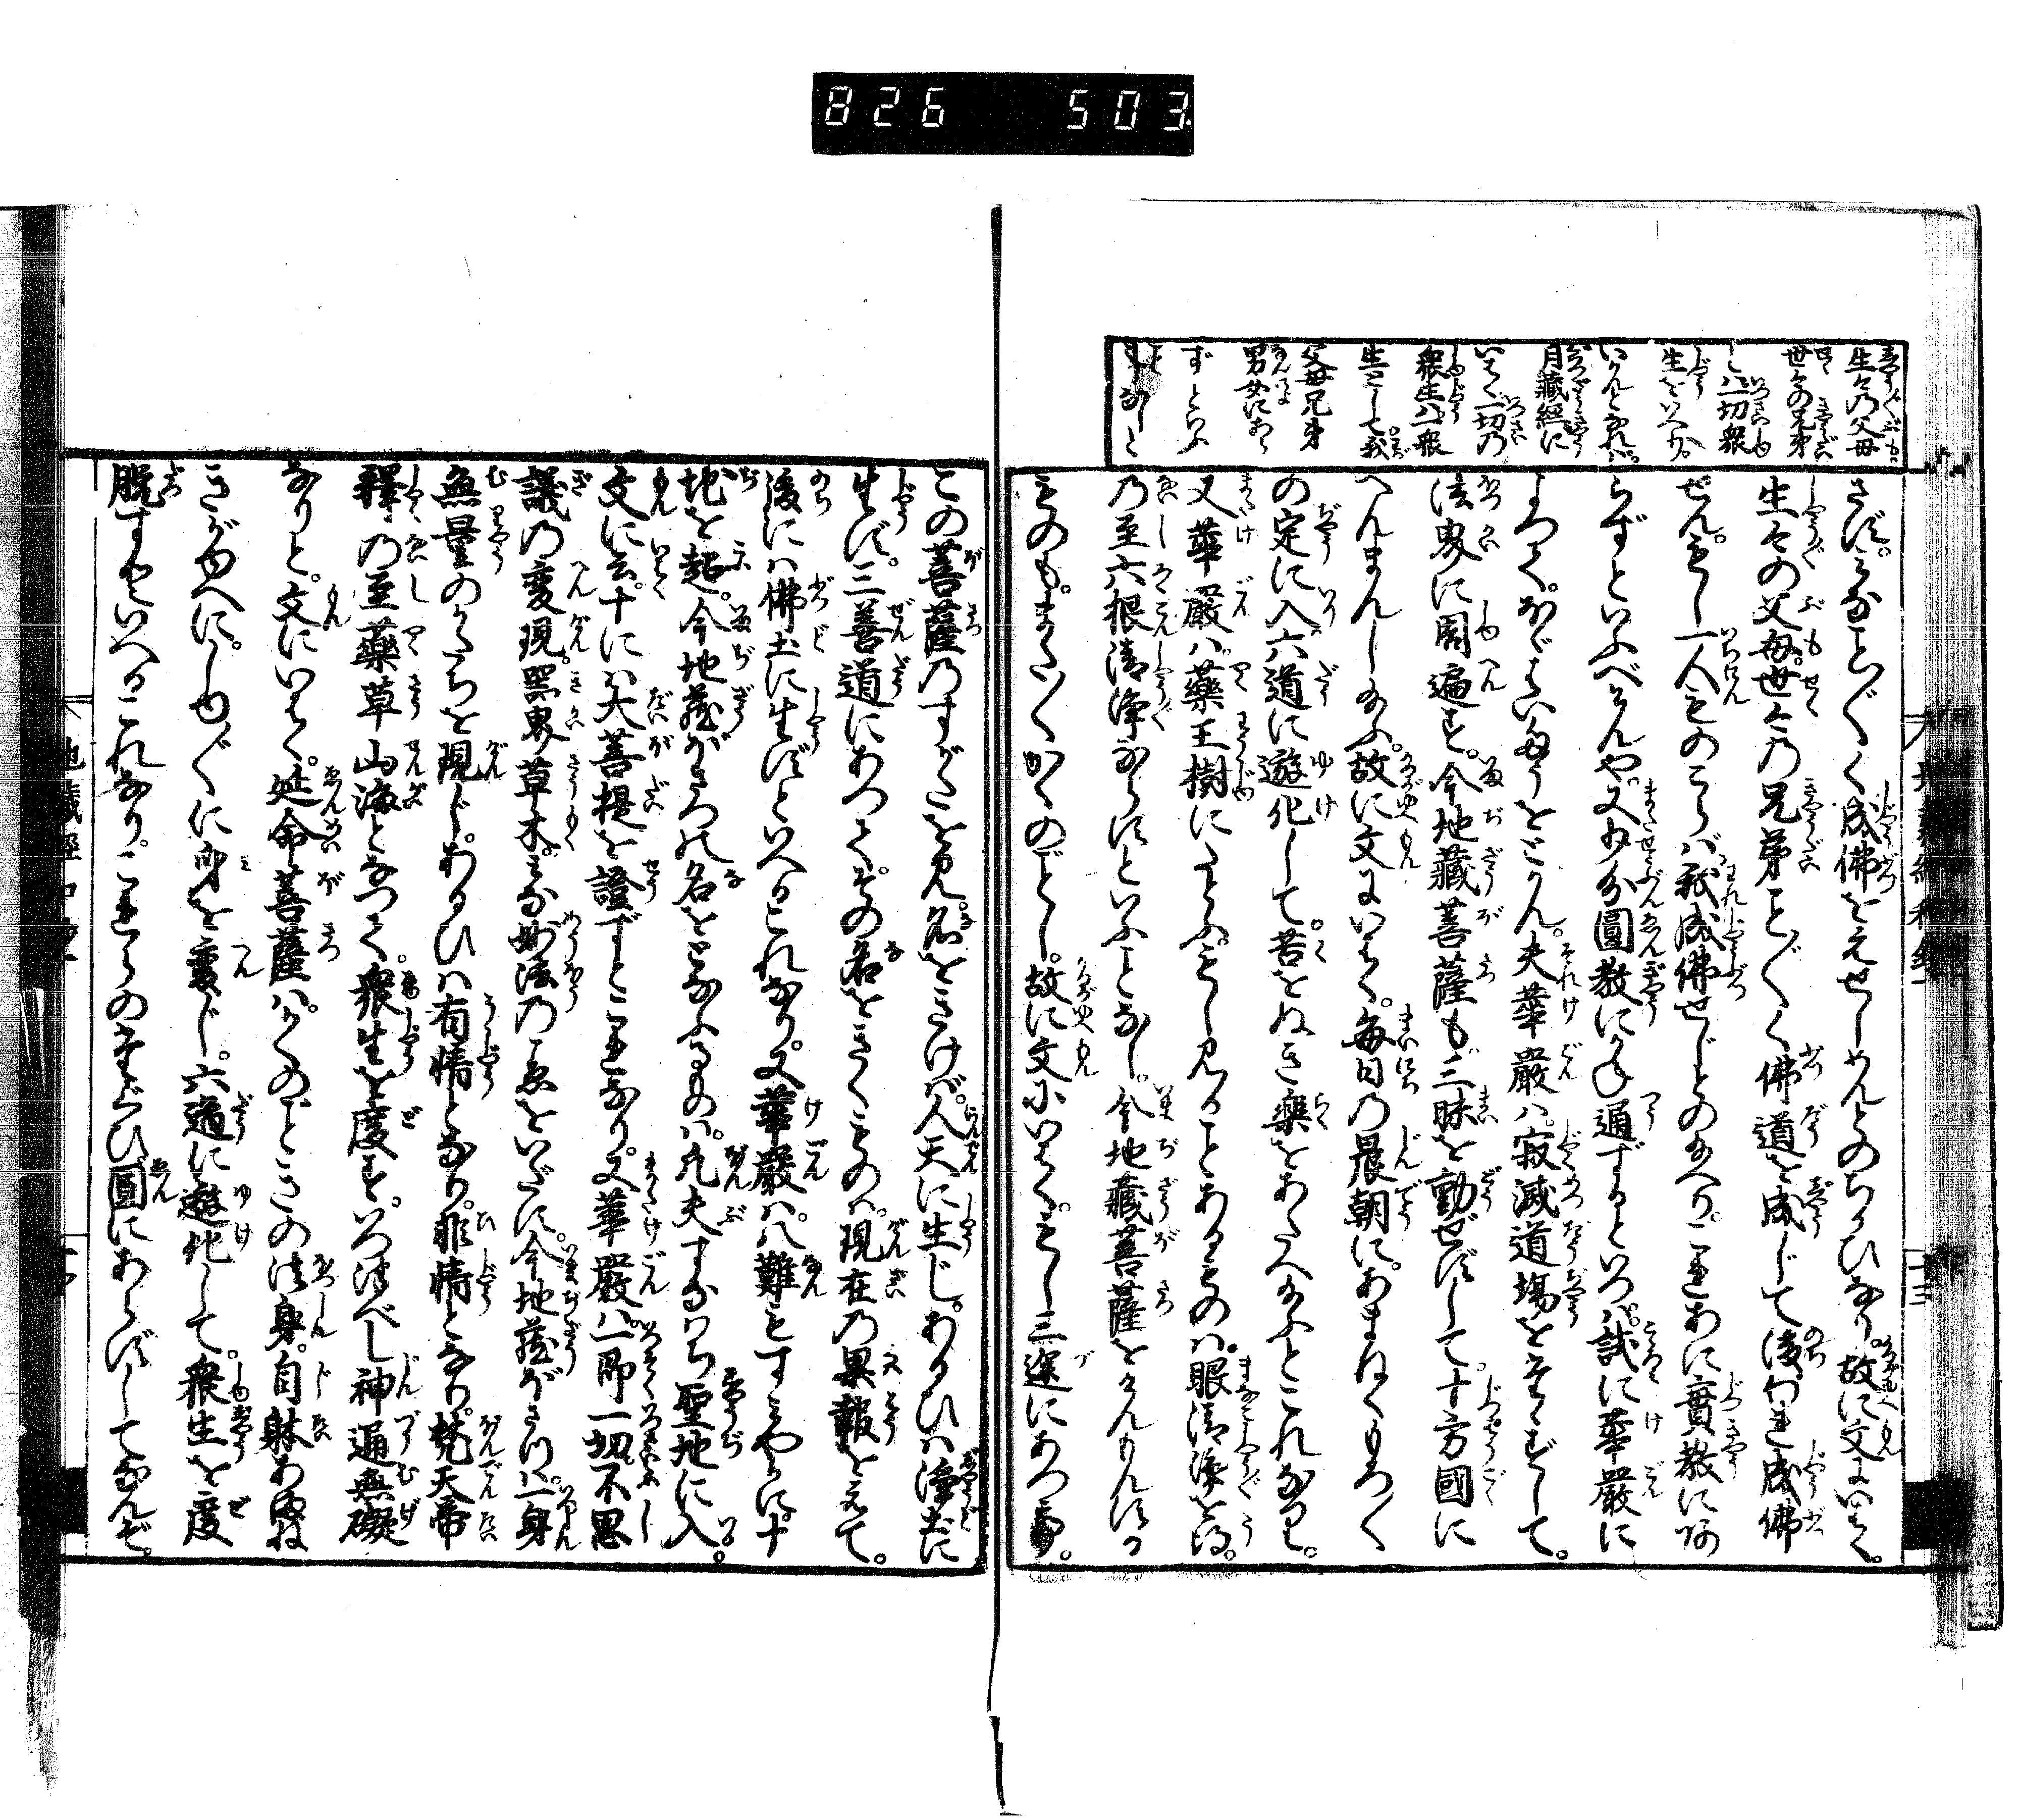 826 503
生々乃父母
世々の兄弟
とハ一切衆
生をいへり。
いかんとなれバ。
月藏經に
いはく一切乃
衆生ハ衆
生として我
父母兄弟
男女にあら
ずといふ
ことなしと
さず。みなこと〴〵く成佛をえせしめんとのちかひなり。故に文にいはく。
生々の父母。世々乃兄弟こと〴〵く佛道を成じて後われ成佛
せん。もし一人ものこらバ我成佛せじとのたへり。これあに實教にあ
らずといふべけんや。又多分圓教にかね通ずるといつは。試に華嚴に
よつて。かくはいたうをとかん。夫華嚴ハ。寂滅道塲をたゝずして。
法界に周遍す。今地藏菩薩も三昧を動ぜずして。十方國に
へんまんしたふ。故に文にいはく。毎日乃晨朝に。あまねくもろ〳〵
の定に入六道に遊化して。苦をぬき樂をあたへたふとこれなり。
又華嚴ハ。藥王樹にたとふ。もし見ることあるものハ。眼清浄を得。
乃至六根清浄ならずといふことなし。今地藏菩薩をけんもんする
ものも。またかくのごとし。故に文にいはく。もし三途にあつて。
この菩薩乃すがたを見。名をきけバ。人天に生じ。あるひハ浄土に
生ず。三善道にあつて。その名をきくものハ。現在乃果報をえて。
後にハ佛土に生ずといへるこれなり。又華嚴ハ。八難をすみやかに十
地を起。今地藏ぼさつの名をとなふるものハ。凡夫すなハち聖地に入。
文に云。十にハ大菩提を證ずとこれなり。又華嚴ハ。一即一切不思
議乃変現。器界草木みな妙法乃こゑをいだす。今地藏ぼさつハ。一身
無量のかたちを現じ。あるひハ有情となり。非情となり。梵天帝
釋乃至藥草山海となつて。衆生を度す。いつつべし神通無礙
なりと。文にいはく。延命菩薩ハ。かくのごときの法身。自躰あまね
きがゆへに。しゆ〴〵に身を変じ。六道に遊化して。衆生を度
脱すといへるこれなり。これらのたぐひ。圓にあらずしてなんぞ。